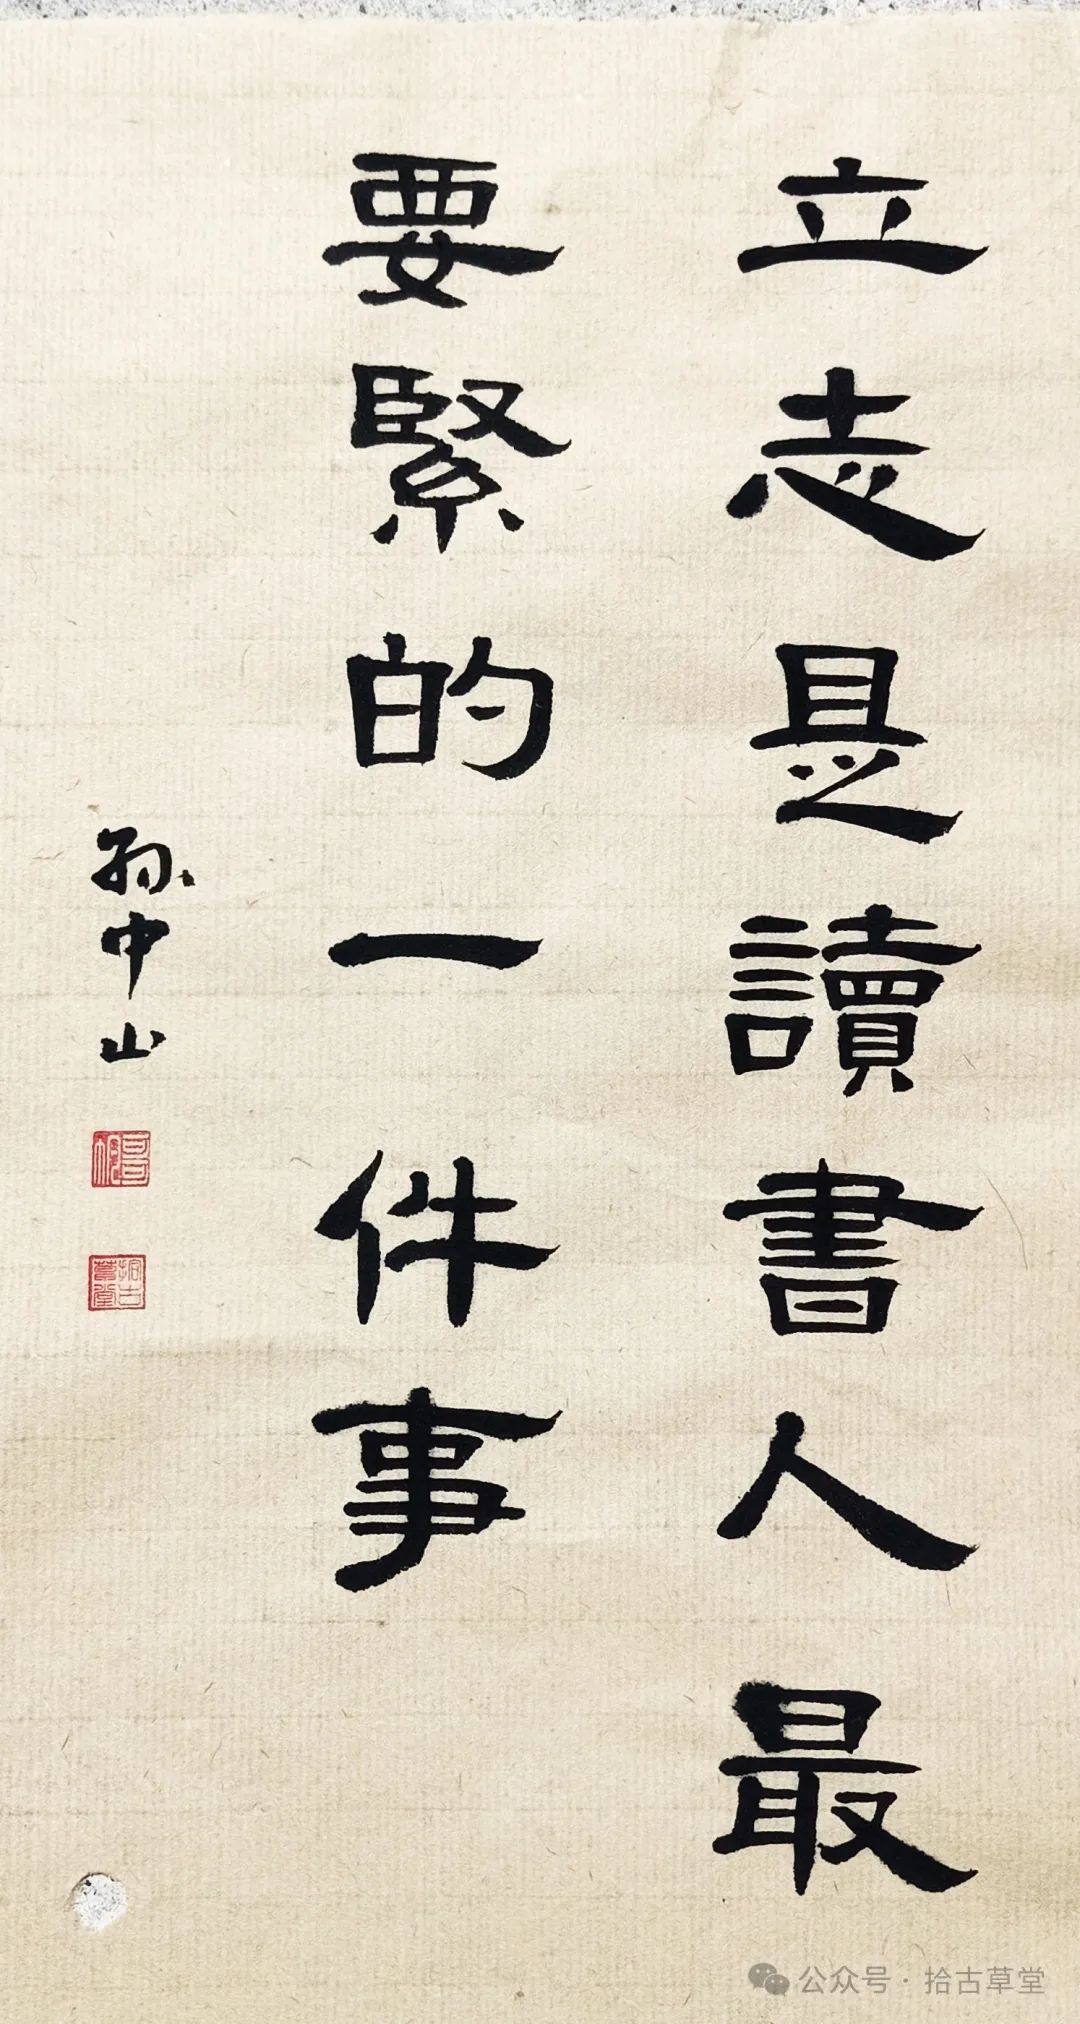 立志是讀書人最
要緊的一件事
孫中山
拾古草堂
公众号·拾古草堂